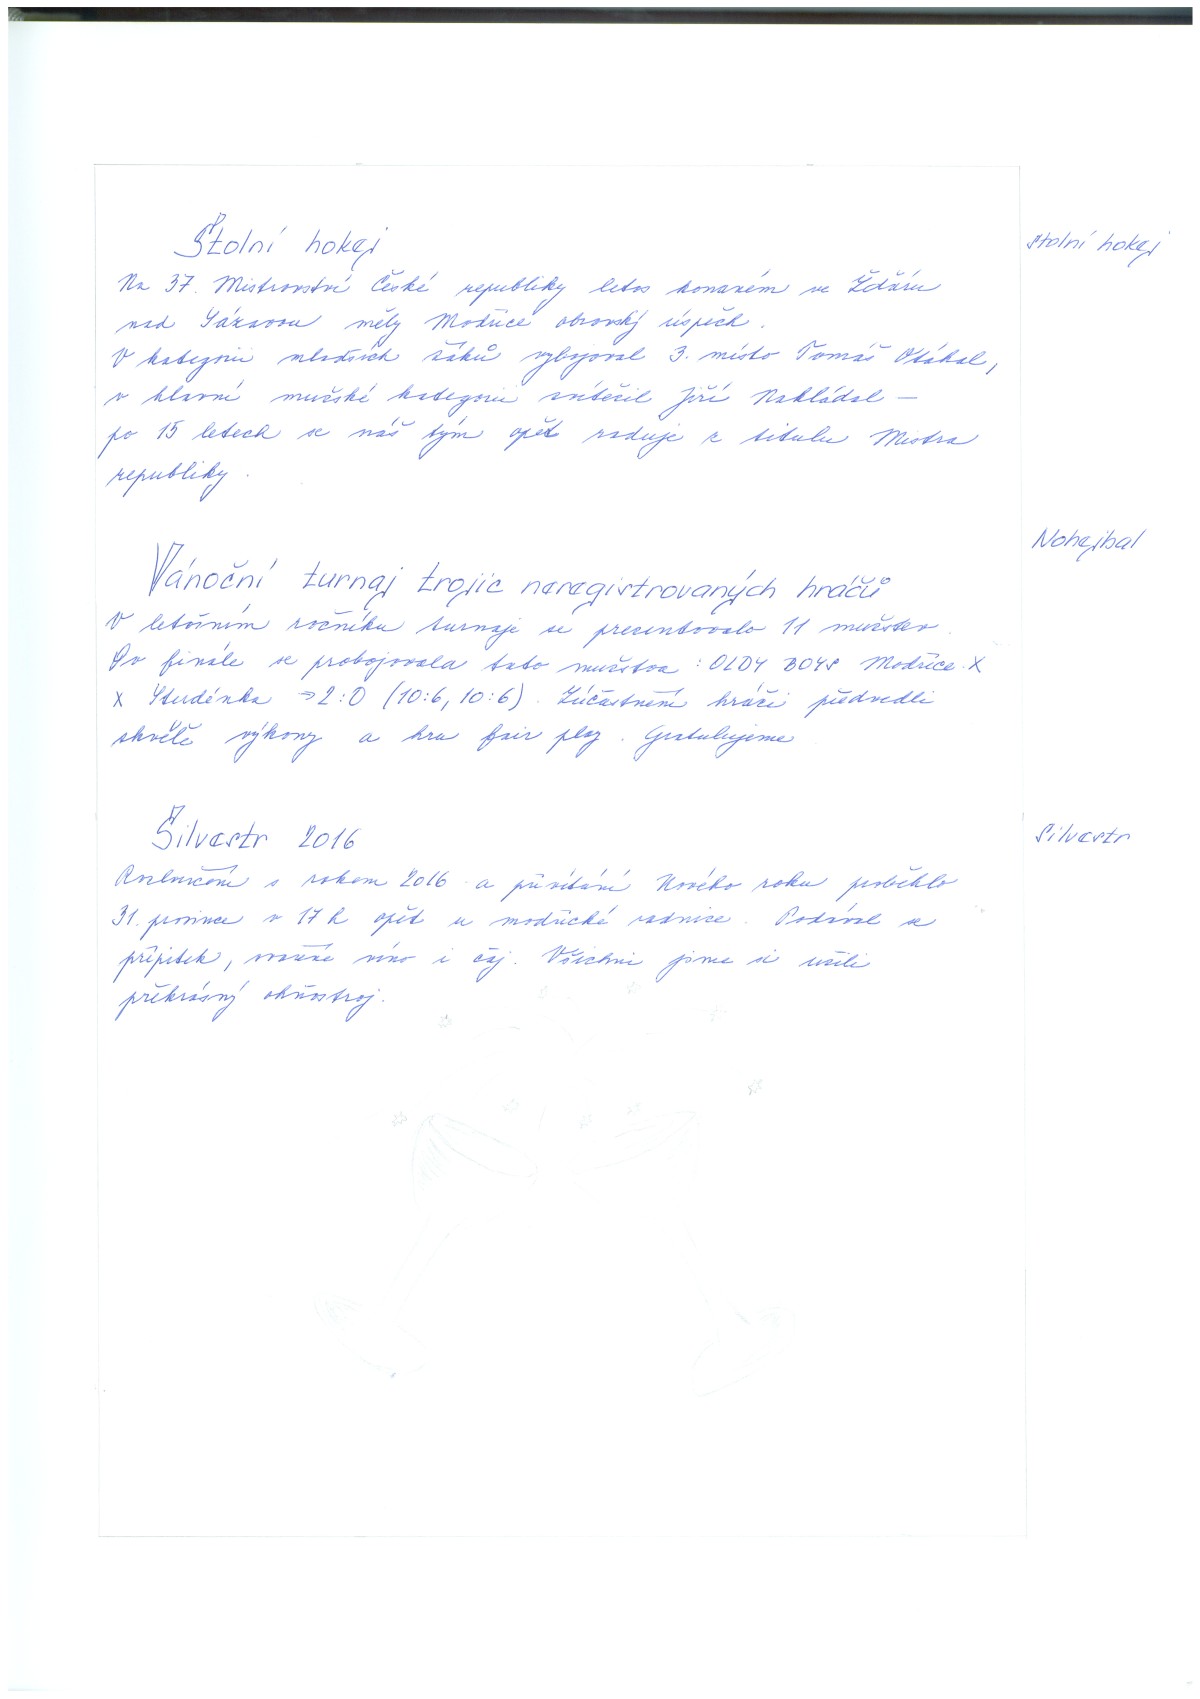 Stolní hokej
Stolní hokej
Na 37. Mistrovství České republiky letos konaném ve Žďáru
nad Sázavou měly Modřice obrovský úspěch.
V kategorii mladších žáků vybojoval 3. místo Tomáš Otáhal,
v hlavní mužské kategorii zvítězil Jiří Nakládal –
po 15 letech se náš tým opět raduje z titulu Mistra
republiky.
Nohejbal
Vánoční turnaj trojic neregistrovaných hráčů
V letošním ročníku turnaje se prezentovalo 11 mužstev.
Do finále se probojovala tato mužstva: OLDY BOYS Modřice X
X Studénka → 2:0 (10:6, 10:6). Zúčastnění hráči předvedli
skvělé výkony a hru fair play. Gratulujeme
Silvestr 2016
Silvestr
Rozloučení s rokem 2016 a přivítání Nového roku proběhlo
31. prosince v 17 h opět u modřické radnice. Podával se
přípitek, svařené víno i čaj. Všichni jsme si užili
překrásný ohňostroj.